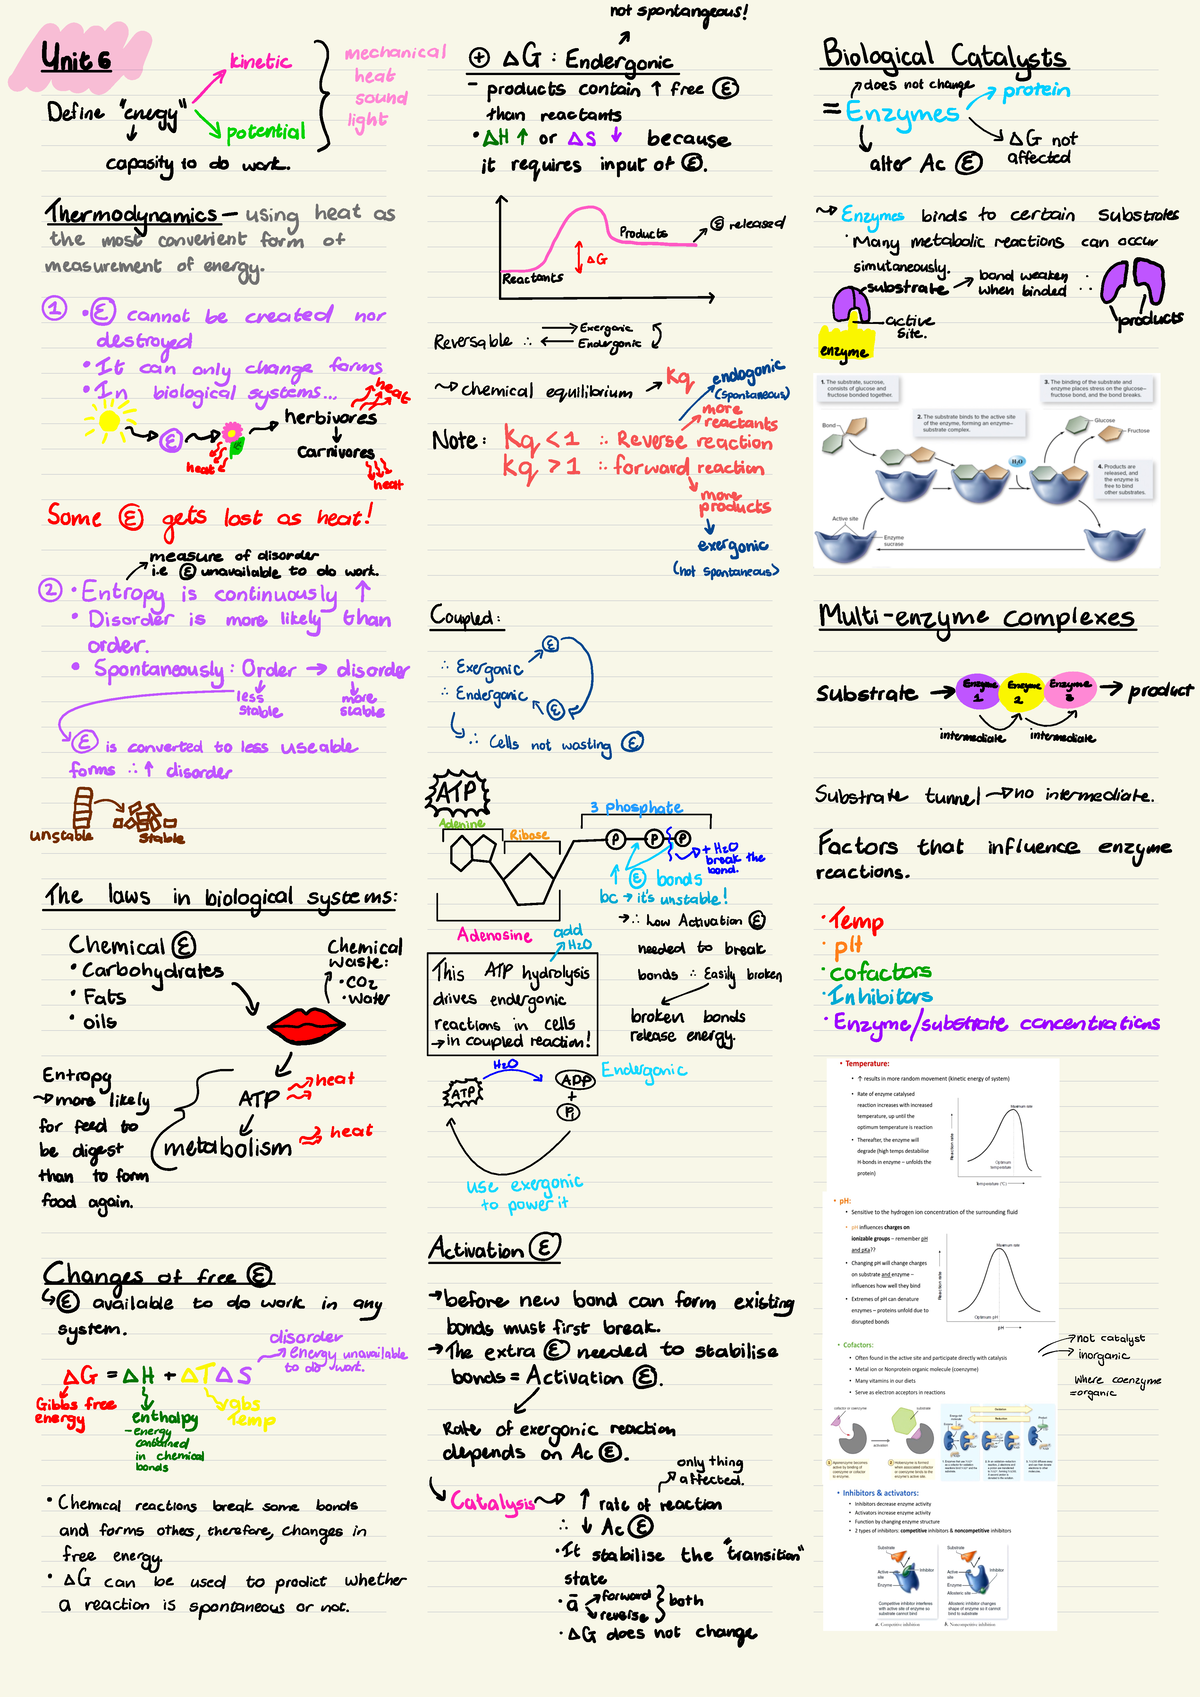 Unit 6
Define "energy"
kinetic
potential
mechanical
heat
sound
light
capasity to do work.
Thermodynamics - using heat as
the most convenient form of
measurement of energy.
① • Ⓔ cannot be created nor
destroyed
• It can only change forms
• In biological systems...
Ⓔ
heat
herbivores
heat
carnivores
heat
Some Ⓔ gets lost as heat!
measure of disorder
i.e Ⓔ unavailable to do work.
② • Entropy is continuously ↑
• Disorder is more likely than
order.
• Spontaneously: Order → disorder
less
stable
more
stable
Ⓔ is converted to less useable
forms ∴ ↑ disorder
unstable
stable
The laws in biological systems:
Chemical Ⓔ
• Carbohydrates
• Fats
• oils
Chemical
waste:
• CO2
• Water
Entropy
~> more likely
for feed to
be digest
than to form
food again.
ATP
heat
metabolism
heat
Changes of free Ⓔ
↳ Ⓔ available to do work in any
system.
disorder
energy unavailable
to do work.
ΔG = ΔH + ΔTΔS
Gibbs free
energy
enthalpy
- energy
contained
in chemical
bonds
abs
Temp
• Chemical reactions break some bonds
and forms others, therefore, changes in
free energy.
• ΔG can be used to predict whether
a reaction is spontaneous or not.
not spontangeous!
⊕ ΔG : Endergonic
- products contain ↑ free Ⓔ
than reactants
• ΔH ↑ or ΔS ↓ because
it requires input of Ⓔ.
Products
Ⓔ released
ΔG
Reactants
Reversable ∴
Exergonic
Endergonic
~> chemical equilibrium → Kq
endogonic
(spontaneous)
more
reactants
Note: Kq < 1 ∴ Reverse reaction
Kq > 1 ∴ forward reaction
more
products
exergonic
(not spontaneous)
Coupled:
∴ Exergonic → Ⓔ
∴ Endergonic ← Ⓔ
↳ ∴ Cells not wasting Ⓔ
ATP
Adenine
Ribose
3 phosphate
P P P
+ H2O
break the
bond.
↑ Ⓔ bonds
bc → it's unstable!
→ ∴ Low Activation Ⓔ
needed to break
bonds ∴ Easily broken
broken bonds
release energy.
Adenosine
add
H2O
This ATP hydrolysis
drives endergonic
reactions in cells
→ in coupled reaction!
H2O
ATP
ADP
+
Pi
Endergonic
use exergonic
to power it
Activation Ⓔ
→ before new bond can form existing
bonds must first break.
→ The extra Ⓔ needed to stabilise
bonds = Activation Ⓔ.
Rate of exergonic reaction
depends on Ac Ⓔ.
only thing
affected.
↳ Catalysis ~> ↑ rate of reaction
∴ ↓ Ac Ⓔ
• It stabilise the "transition"
state
• a
forward
reverse
both
• ΔG does not change
Biological Catalysts
does not change
= Enzymes
protein
alter Ac Ⓔ
ΔG not
affected
~> Enzymes binds to certain substrates
• Many metabolic reactions can occur
simutaneously.
substrate
bond weaken
when binded
∴
products
active
site.
enzyme
1. The substrate, sucrose,
consists of glucose and
fructose bonded together.
2. The substrate binds to the active site
of the enzyme, forming an enzyme–
substrate complex.
3. The binding of the substrate and
enzyme places stress on the glucose–
fructose bond, and the bond breaks.
4. Products are
released, and
the enzyme is
free to bind
other substrates.
Bond
Glucose
Fructose
H2O
Active site
Enzyme
sucrase
Multi-enzyme complexes
Substrate → Enzyme 1 Enzyme 2 Enzyme 3 → product
intermediate
intermediate
Substrate tunnel ~> no intermediate.
Factors that influence enzyme
reactions.
• Temp
• pH
• cofactors
• Inhibitors
• Enzyme/substrate concentrations
• Temperature:
• ↑ results in more random movement (kinetic energy of system)
• Rate of enzyme catalysed
reaction increases with increased
temperature, up until the
optimum temperature is reaction
• Thereafter, the enzyme will
degrade (high temps destabilise
H-bonds in enzyme – unfolds the
protein)
Maximum rate
Reaction rate
Optimum
temperature
Temperature (°C)
• pH:
• Sensitive to the hydrogen ion concentration of the surrounding fluid
• pH influences charges on
ionizable groups – remember pH
and pKa??
• Changing pH will change charges
on substrate and enzyme –
influences how well they bind
• Extremes of pH can denature
enzymes – proteins unfold due to
disrupted bonds
Maximum rate
Reaction rate
Optimum pH
pH
• Cofactors:
• Often found in the active site and participate directly with catalysis
• Metal ion or Nonprotein organic molecule (coenzyme)
• Many vitamins in our diets
• Serve as electron acceptors in reactions
not catalyst
inorganic
where coenzyme
= organic
cofactor or coenzyme
substrate
activation
• Inhibitors & activators:
• Inhibitors decrease enzyme activity
• Activators increase enzyme activity
• Function by changing enzyme structure
• 2 types of inhibitors: competitive inhibitors & noncompetitive inhibitors
Substrate
Active
site
Inhibitor
Enzyme
Competitive inhibitor interferes
with active site of enzyme so
substrate cannot bind
a. Competitive inhibition
Substrate
Active
site
Inhibitor
Enzyme
Allosteric site
Allosteric inhibitor changes
shape of enzyme so it cannot
bind to substrate
b. Noncompetitive inhibition